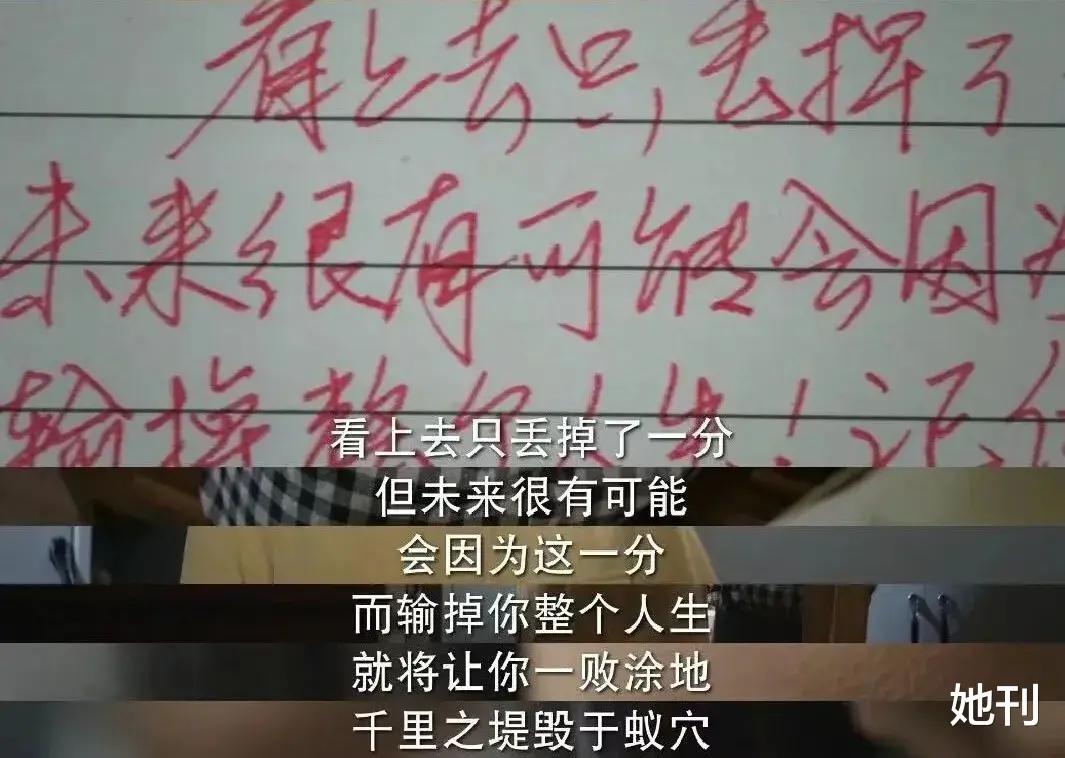 看上去只丢掉了
未来很有可能会因为
输掉整个人生！记住
看上去只丢掉了一分
但未来很有可能
会因为这一分
而输掉你整个人生
就将让你一败涂地
千里之堤毁于蚁穴
她刊